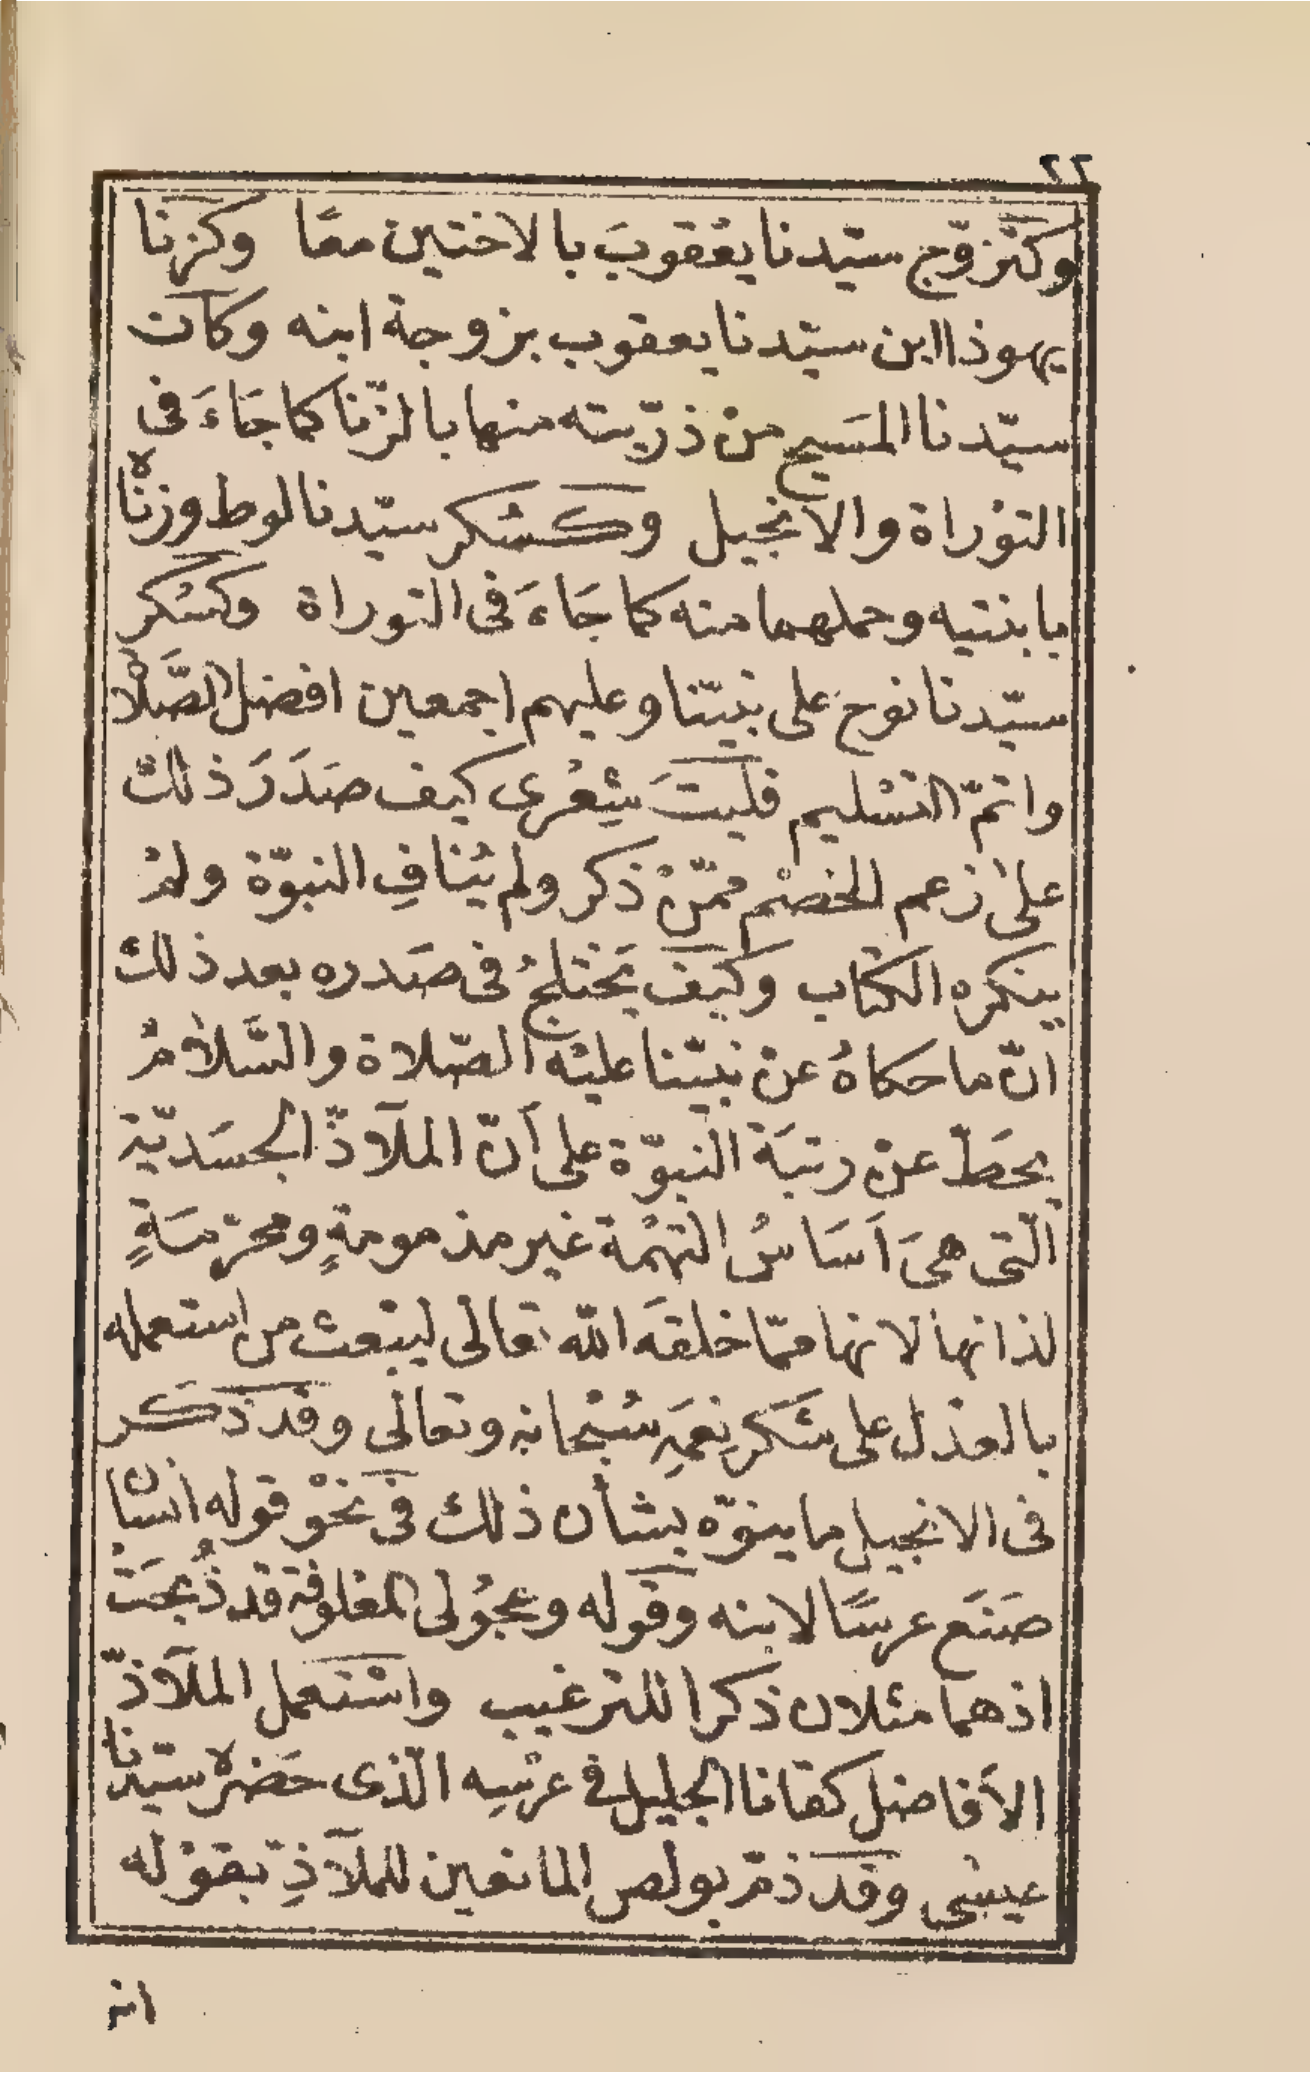 ٢٢
وكتزوّج سيّدنا يعقوبَ بالاختين معًا وكزنا
يهوذا ابن سيّدنا يعقوب بزوجة ابنه وكان
سيّدنا المسَيح منْ ذرّيته منها بالزّنا كما جَاءَ فى
التوْراة والانجيل وكسُكر سيّدنا لوط وزناه
بابنتيه وحملهما منه كما جَاءَ فى التوراة وكسُكر
سيّدنا نوح على نبيّنا وعليهم اجمعين افضل الصَّلاة
واتمّ التسْليم فليتَ شِعْرى كيف صَدَرَ ذلك
على زعم الخصْم ممّنْ ذكر ولم يُنافِ النبوّة ولمْ
ينكره الكتاب وكيفَ يَختلجُ فى صَدره بعد ذلك
انّ ما حكاهُ عنْ نبيّنا عليْه الصّلاة والسَّلامُ
يحَطّ عنْ رتبَة النبوّة على أنّ الملآذّ الجسَديّة
الّتى هىَ اَسَاسُ التهْمَة غير مذمومةٍ ومحرّمَةٍ
لذاتها لانها ممّا خلقَه الله تعالى ليبْعث من استعمله
بالعذل على شكر نِعَمِهِ سُبْحانه وتعالى وقد ذكر
فى الانجيل ما ينوّه بشأن ذلك فى نحْو قوله انسْان
صَنَع عرسًا لابنه وقوله وعجُولى المعْلوفة قد ذُبحَتْ
اذهما مثلان ذكرا للترغيب واسْتعمل الملآذّ
الأفاضل كقانا الجليل فى عرْسِه الّذى حَضره سيّدنا
عيسٰى وقد ذمّ بولص المانعين للملآذِّ بقوْله
انه